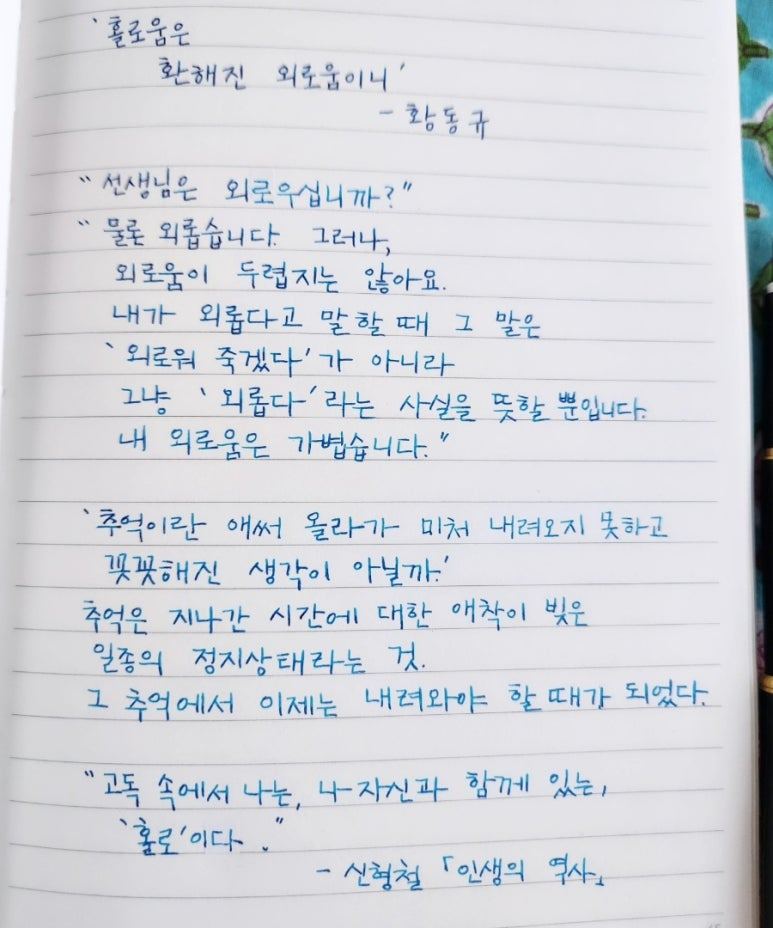 '홀로움은
환해진 외로움이니'
- 황동규
"선생님은 외로우십니까?"
"물론 외롭습니다. 그러나,
외로움이 두렵지는 않아요.
내가 외롭다고 말할 때 그 말은
'외로워 죽겠다'가 아니라
그냥 '외롭다'라는 사실을 뜻할 뿐입니다.
내 외로움은 가볍습니다."
'추억이란 애써 올라가 미처 내려오지 못하고
꼿꼿해진 생각이 아닐까.'
추억은 지나간 시간에 대한 애착이 빚은
일종의 정지상태라는 것.
그 추억에서 이제는 내려와야 할 때가 되었다.
"고독 속에서 나는, 나 자신과 함께 있는,
'홀로'이다."
- 신형철 「인생의 역사」